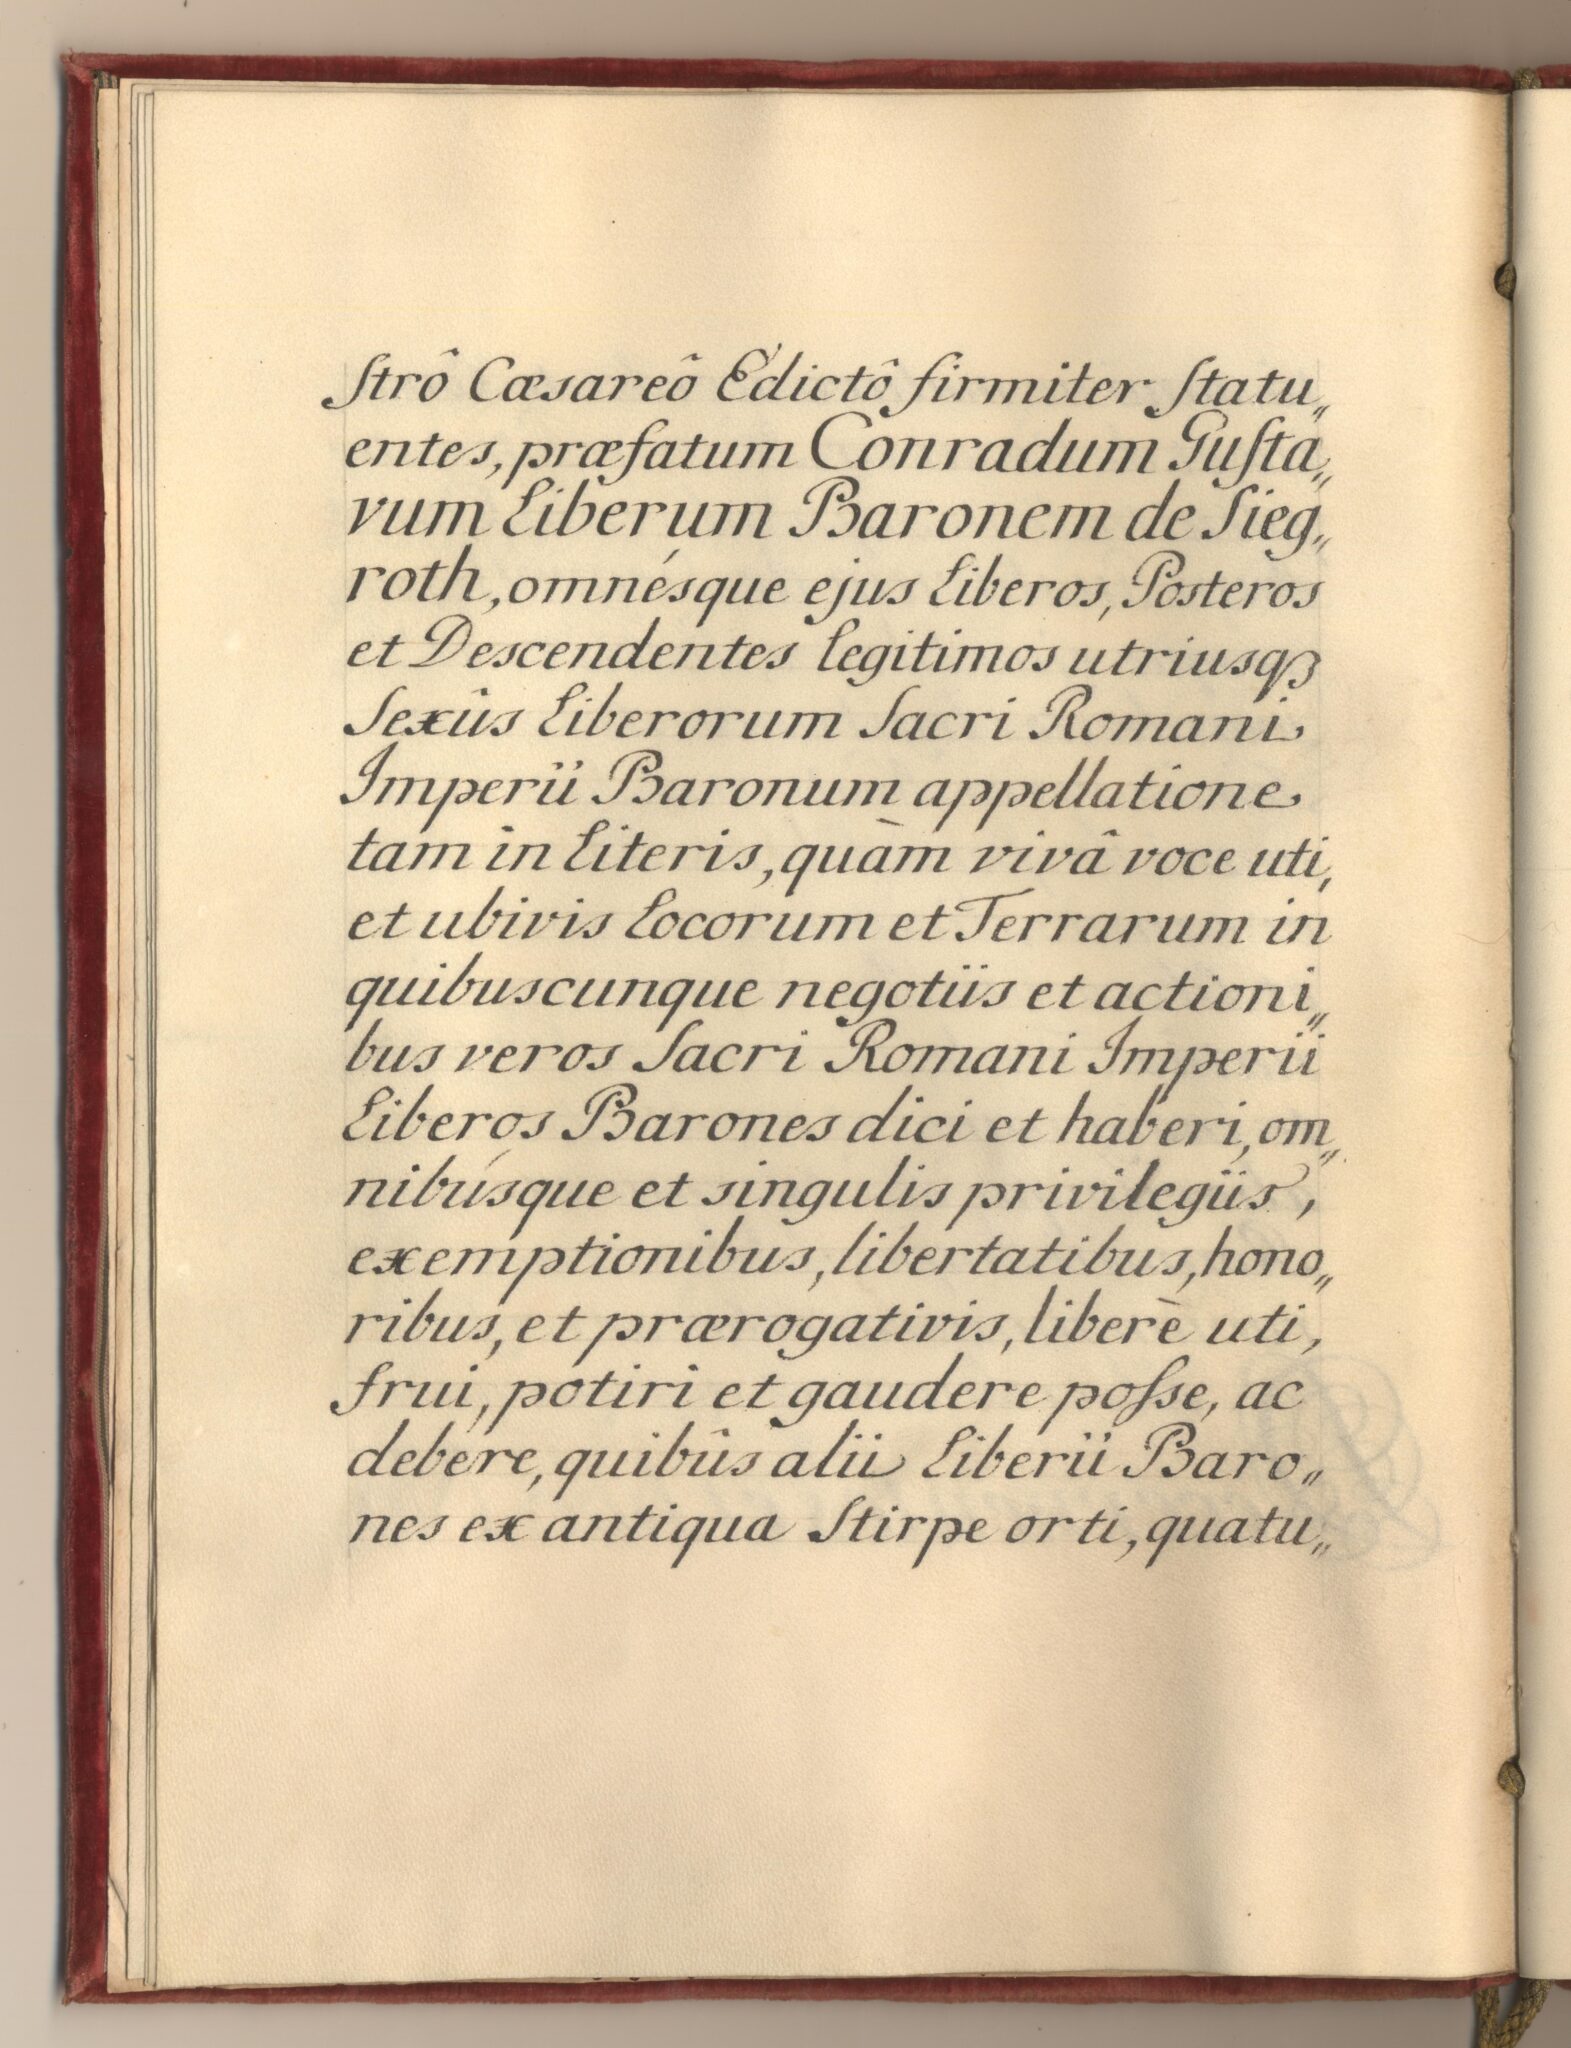 strô Cæsareô Edictô firmiter statu„
entes, præfatum Conradum Gusta„
vum Liberum Baronem de Sieg„
roth, omnésque ejus Liberos, Posteros
et Descendentes legitimos utriusqꝫ
Sexûs Liberorum Sacri Romani
Imperii Baronum appellatione
tam in Literis, quàm vivâ voce uti,
et ubivis Locorum et Terrarum in
quibuscunque negotiis et actioni„
bus veros Sacri Romani Imperii
Liberos Barones dici et haberi, om„
nibúsque et singulis privilegiis,
exemptionibus, libertatibus, hono„
ribus, et prærogativis, liberè uti,
frui, potiri et gaudere posse, ac
debere, quibûs alii Liberii Baro„
nes ex antiqua Stirpe orti, quatu„